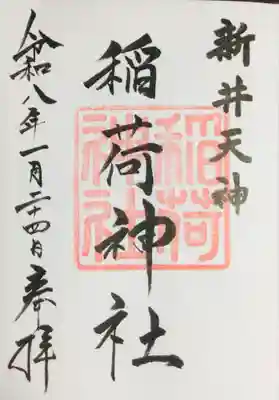 新井天神
稲荷神社
稲荷神社
令和八年一月二十四日奉拝